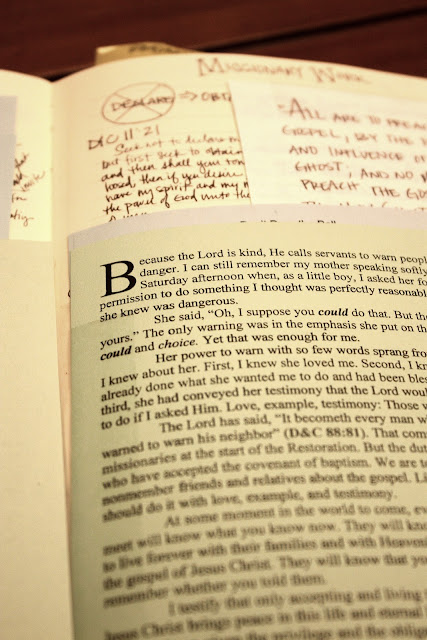 MISSIONARY WORK
DECLARE ⇒ OBTA
D&C 11:21
Seek not to declare m
but first seek to obtain
and then shall your ton
loosed, then if you desire
have my spirit and my
the power of God unto the
"ALL ARE TO PREAC
GOSPEL, BY THE
AND INFLUENCE O
GHOST; AND NO
PREACH THE GOS
Because the Lord is kind, He calls servants to warn people
danger. I can still remember my mother speaking softly
Saturday afternoon when, as a little boy, I asked her fo
permission to do something I thought was perfectly reasonable
she knew was dangerous.
She said, "Oh, I suppose you could do that. But the
yours." The only warning was in the emphasis she put on th
could and choice. Yet that was enough for me.
Her power to warn with so few words sprang from
I knew about her. First, I knew she loved me. Second, I kn
already done what she wanted me to do and had been bles
third, she had conveyed her testimony that the Lord woul
to do if I asked Him. Love, example, testimony: Those w
The Lord has said, "It becometh every man wh
warned to warn his neighbor" (D&C 88:81). That com
missionaries at the start of the Restoration. But the dut
who have accepted the covenant of baptism. We are to
nonmember friends and relatives about the gospel. Li
should do it with love, example, and testimony.
At some moment in the world to come, ev
meet will know what you know now. They will kno
to live forever with their families and with Heaven
the gospel of Jesus Christ. They will know that yo
remember whether you told them.
I testify that only accepting and living
Jesus Christ brings peace in this life and eternal
the privilege and the